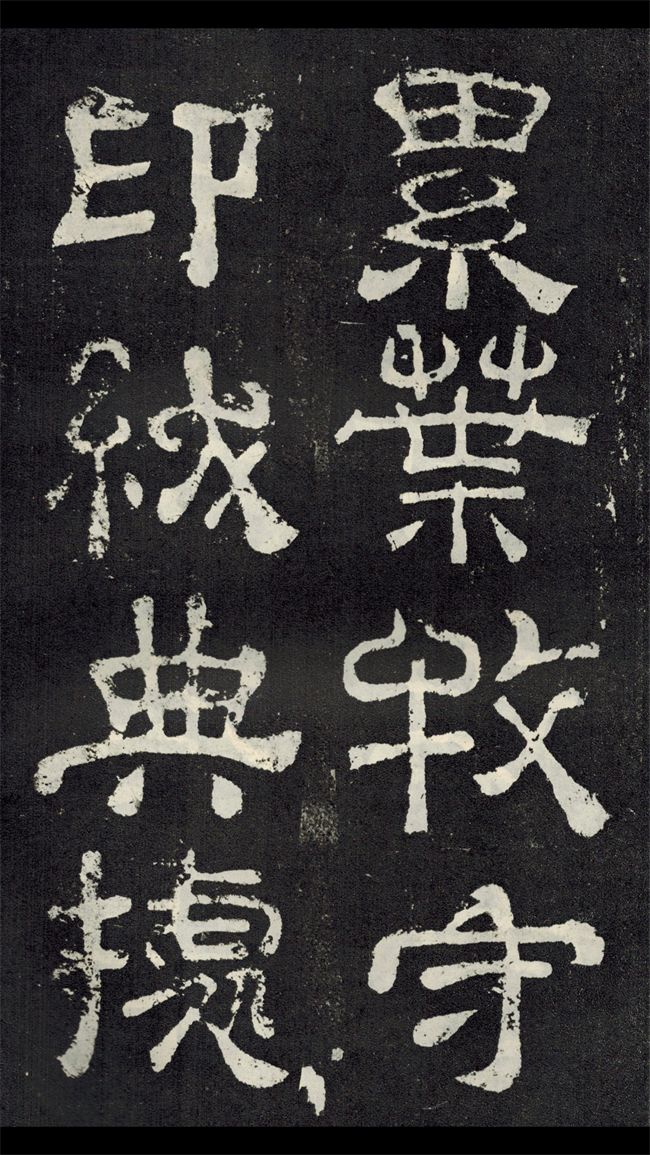 累葉牧守
印紱典據